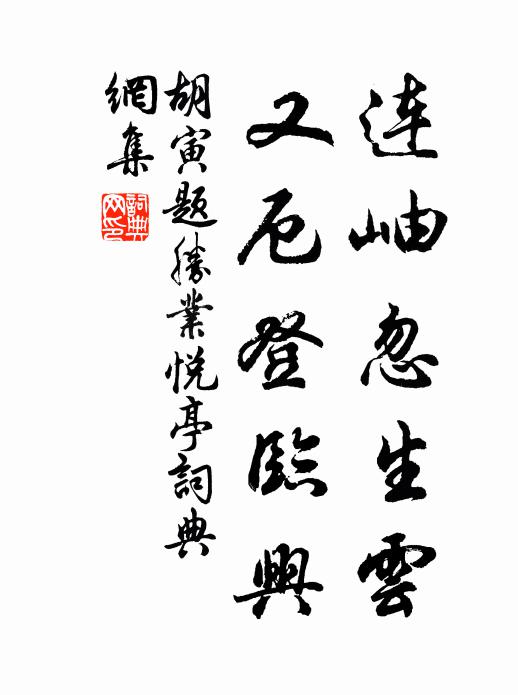 連岫忽生雲
又厄登臨興
胡寅題勝業悅亭詞典
網集
詞典
网印